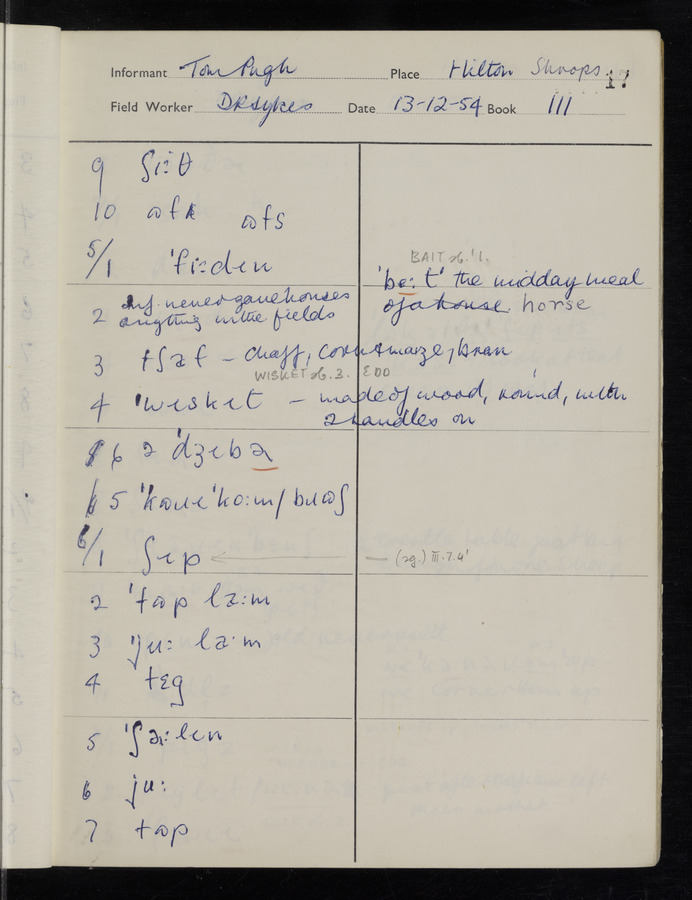 Informant Tom Pugh Place Hilton Shrops. 17
Field Worker DRSykes Date 13-12-54 Book III
9 ʃi:θ
10 ɒfs
5/1 ˈfi:dɪn
BAIT
ˈbɛ:tˈ the midday meal
of a house horse
2 Inf. never gave horses
anything in the fields
3 tʃaf – chaff, corn & maize, bran
WISKET EDD
4 ˈwɪskɪt – made of wood, round, with
2 handles on
6 ə ˈdʒɛbə
5
6/1 ʃɪp (sg.) III.7.4'
2 ˈtɒp la:m
3 ˈju: la:m
4 tɛg
5
6 ju:
7 tɒp